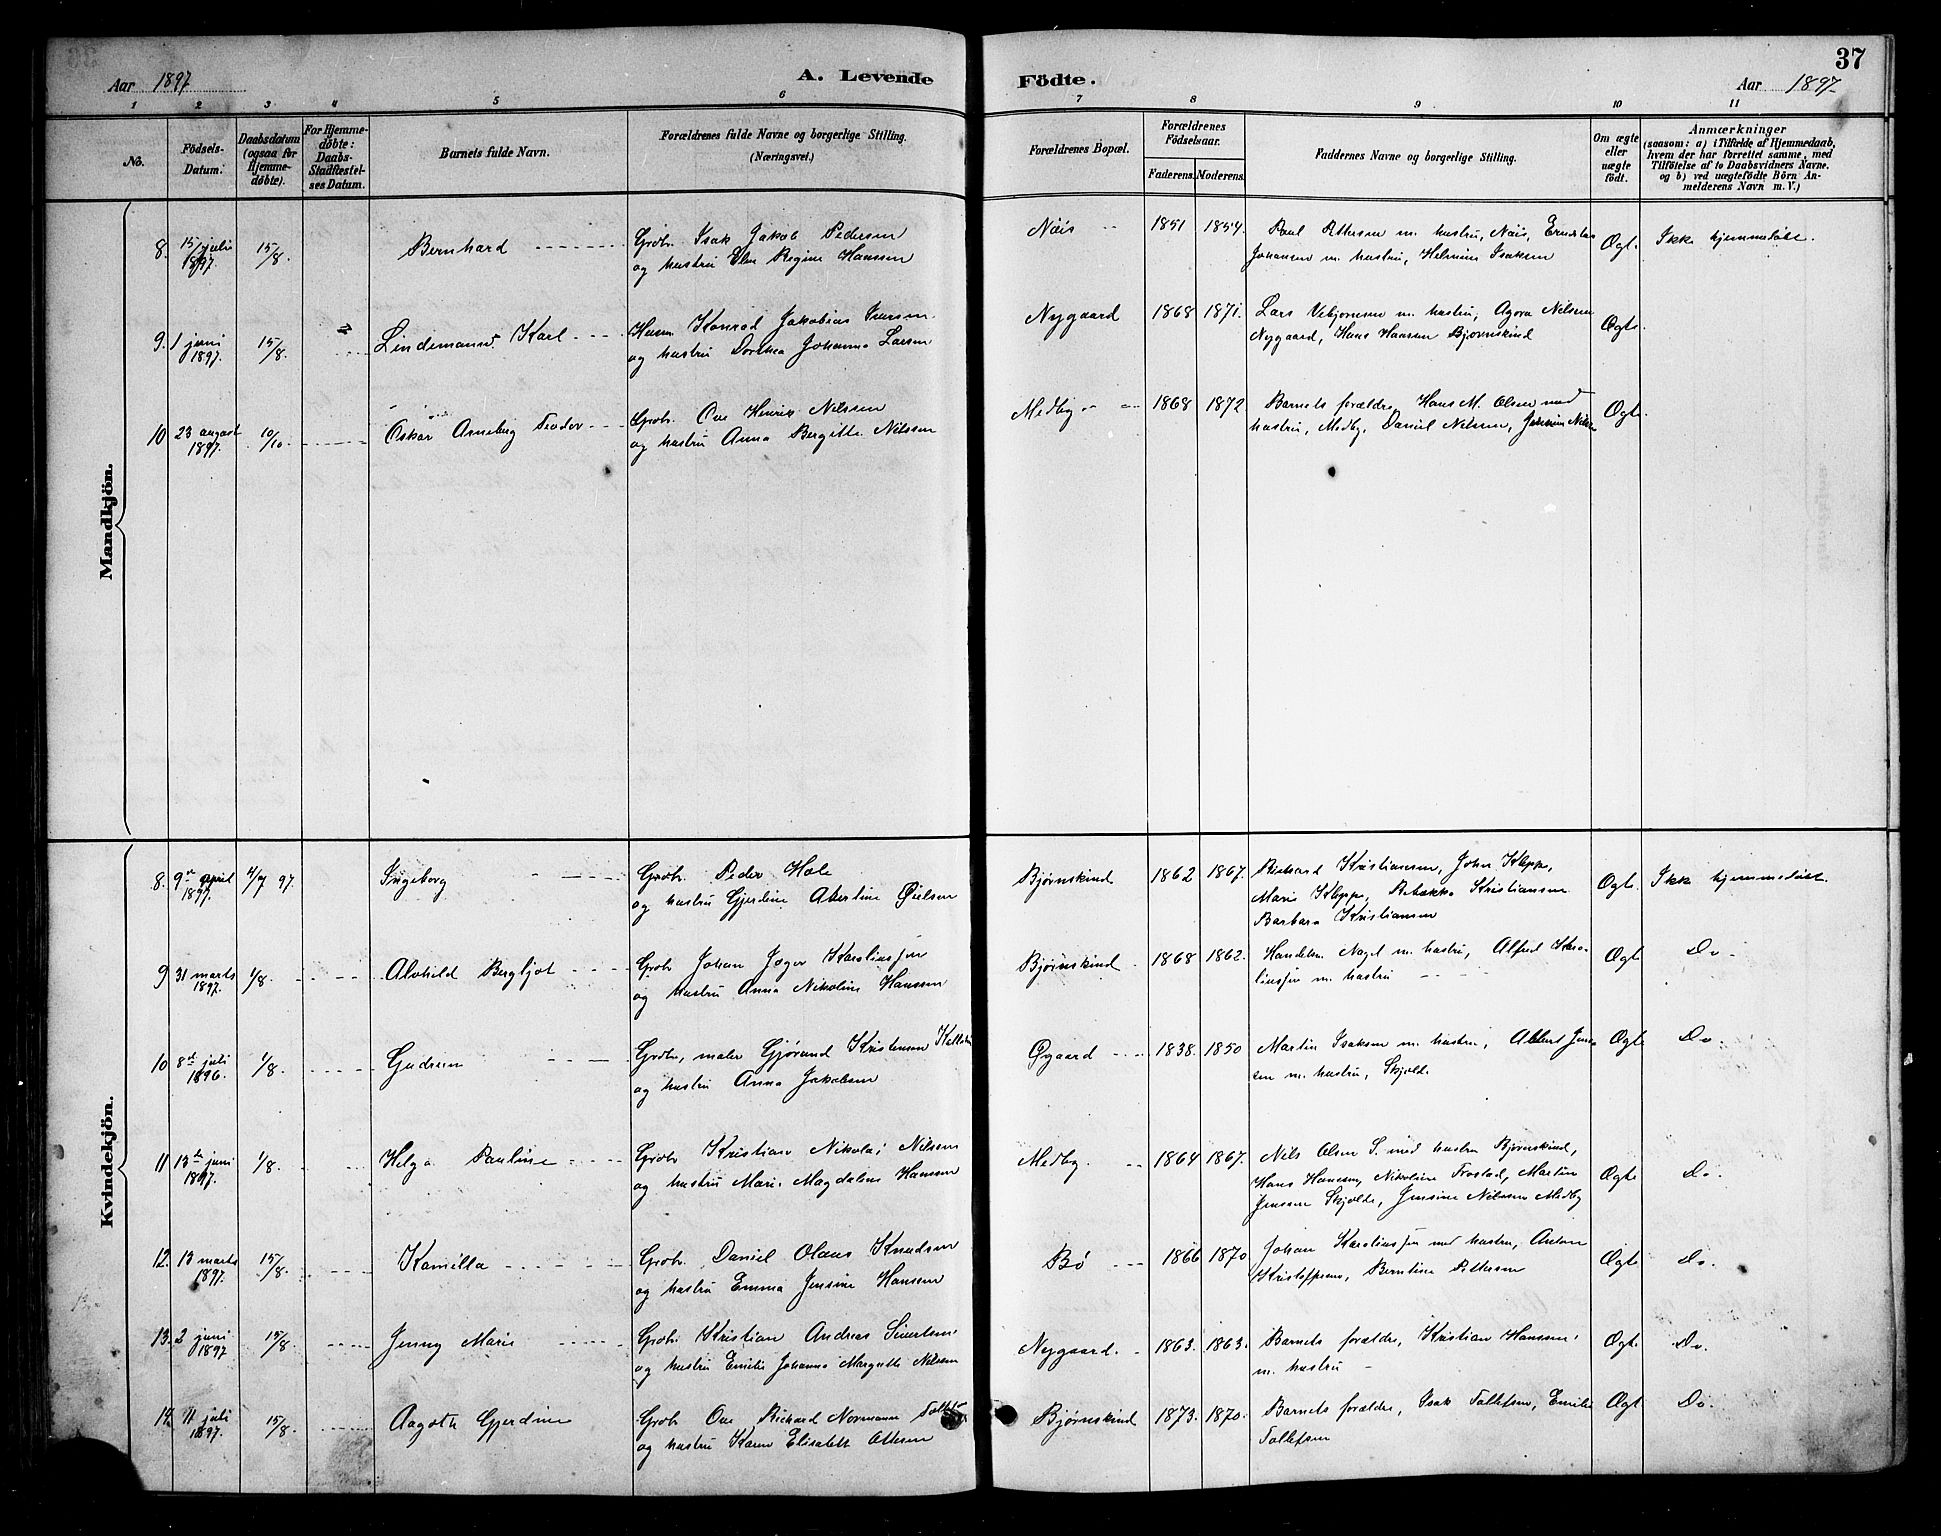 37
Aar 1897
A. Levende Födte.
Aar 1897
1 2 3 4 5 6 7 8 9 10 11
No.
Födsels-Datum.
Daabsdatum (ogsaa for Hjemme-døbte).
For Hjemme-døbte: Daabs-Stadfæstel-ses Datum.
Barnets fulde Navn.
Forældrenes fulde Navne og borgerlige Stilling.
(Næringsvei.)
Forældrenes Bopæl.
Forældrenes Födselsaar.
Faderens. Moderens.
Faddernes Navne og borgerlige Stilling.
Om ægte eller uægte født.
Anmærkninger
(saasom: a) i Tilfælde af Hjemmedaab,
hvem der har forrettet samme, med
Tilføielse af to Daabsvidners Navne.
og b) ved uægtefødte Börn An-
melderens Navn m. V.)
Mandkjön.
8. 15/juli 1897. 15/8. Bernhard
Grbr. Isak Jakob Pedersen
og hustru Else Regine Hanssen
Nøis 1851 1854.
Paul Pettersen m. hustru, Nøis,
Johansen m. hustru, Helmine Isaksen
Ægt. Ikke hjemmedøbt.
9. 1 juni 1897. 15/8. Karl
Konrad Jakobius
og hustru Dorthea Johanna Larsen
Nygaard 1868 1871.
Lars m. hustru, Nilsen
Nygaard, Hans Hansen Bjørnskind
Ægte.
10 23 august 1897. 10/10. Oskar Arneberg Teodor
Grbr. Ove Henrik Nilssen
og hustru Anna Bergitte Nilssen
Medby 1868 1872
Barnets forældre, Hans M. Olsen med
hustru, Medby, Daniel Nilssen,
Ægte
Kvindekjön.
8. 9de april 1897. 4/7 97. Ingeborg
Grbr. Peder Hole
og hustru Gjerdine Albertine
Bjørnskind 1862 1867.
Richard Kristiansen, John Kleppe,
Marie Kleppe, Rebekka Kristiansen
Barbara Kristiansen
Ægte Ikke hjemmedøbt.
9 31 marts 1897. 1/8. Alvhild Bergljot
Grbr Johan Jøger Karoliussen
og hustru Anna Nikoline Hanssen
Bjørnskind 1868 1862.
Handelsm. m. hustru, Alfred Karo-
liussen m. hustru
Ægte Do.
10 8de juli 1896. 1/8. Gudrun
Grbr, maler Gjørund Kristensen
og hustru Anna Jakobsen
Øgaard 1838. 1850
Martin Isaksen m. hustru, Albert Jens-
sen m. hustru, Skjolde.
Ægte Do.
11 13de juni 1897. 1/8. Helga Pauline
Grbr Kristian Nikolai Nilssen
og hustru Marie Magdalene Hanssen
Medby. 1864 1867.
Nils Olsen S. med hustru Bjørnskind,
Hans Hanssen, Nikoline Frostad, Martin
Jenssen Skjolde, Jensine Nilssen Medby
Ægte Do.
12. 13 marts 1897. 15/8. Kamilla
Grbr. Daniel Olaus Knudsen
og hustru Emma Jensine Hanssen
Bø 1866 1870
Johan Karoliussen med hustru, Anton
Kristoffersen, Berntine Pettersen
Ægte Do.
13. 2 juni 1897 15/8. Jenny Marie
Grbr. Kristian Andreas Sivertsen
og hustru Emilie Johanna Margrethe Nilsen
Nygaard. 1863. 1863.
Barnets forældre, Kristian Hanssen
m. hustru
Ægte Do.
14. 11 juli 1897. 15/8. Aagoth Gjerdine
Grbr Ove Richard Normann
og hustru Karen Elisabeth Ottesen
Bjørnskind 1873. 1870.
Barnets forældre, Isak Tollefsen, Emilie
Tollefsen
Ægt Do.